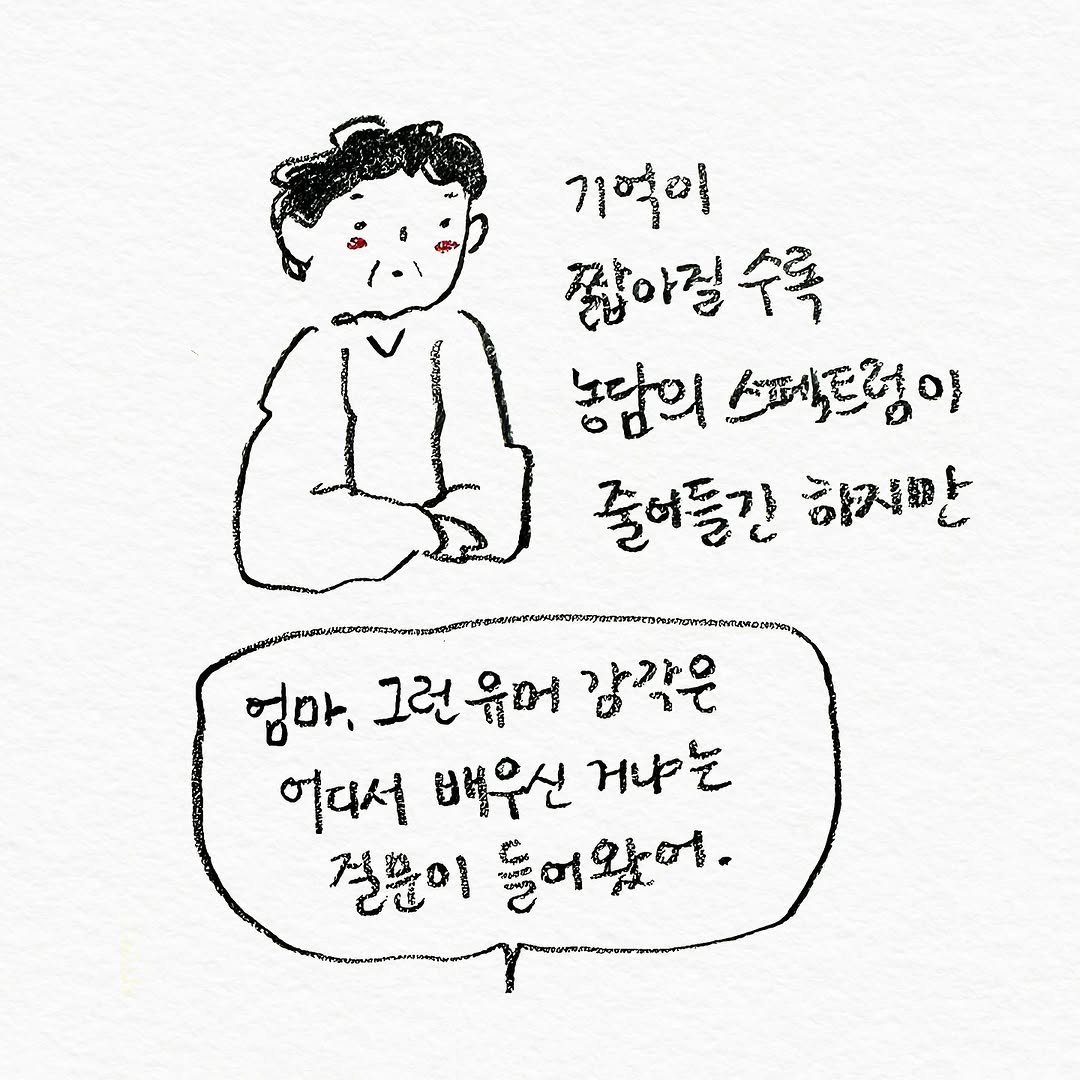 기억이
짧아질 수록
농담의 스펙트럼이
줄어들긴 하지만
엄마, 그런 유머 감각은
어디서 배우신 거냐는
질문이 들어왔어.